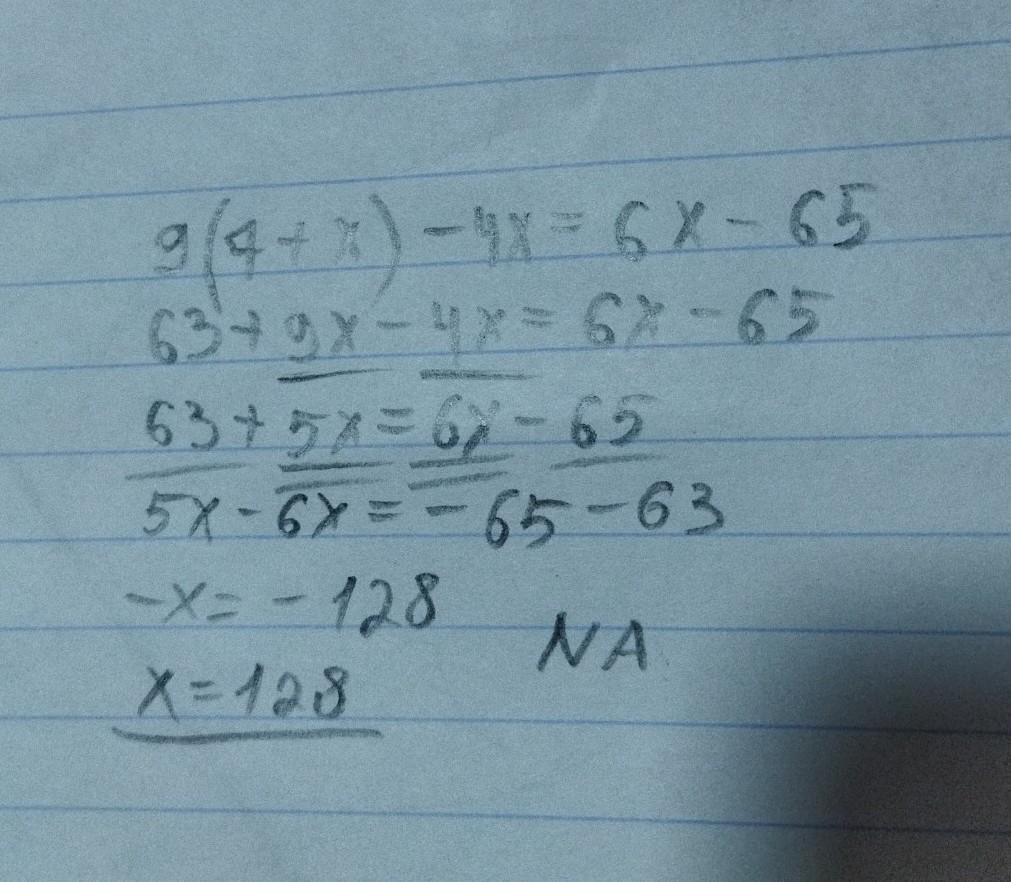 9(4+x)-4x=6x-65
63+9x-4x=6x-65
63+5x=6x-65
5x-6x=-65-63
-x=-128
NA
x=128